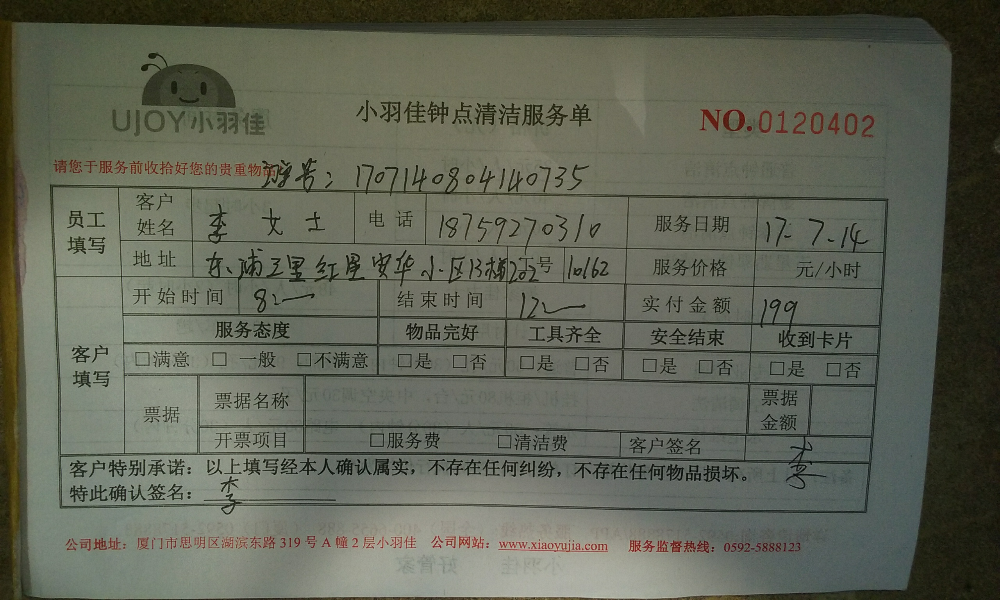 UJOY小羽佳
小羽佳钟点清洁服务单
NO.0120402
请您于服务前收拾好您的贵重物品
单号：1707140804140735
员工填写 客户姓名 李女士 电话 18759270310 服务日期 17-7.14
地址 东浦三里红星安华小区13梯202 工号 10162 服务价格 元/小时
开始时间 8 结束时间 12 实付金额 199
客户填写 服务态度 物品完好 工具齐全 安全结束 收到卡片
□满意 □一般 □不满意 □是 □否 □是 □否 □是 □否 □是 □否
票据 票据名称 票据金额
开票项目 □服务费 □清洁费 客户签名 李
客户特别承诺：以上填写经本人确认属实，不存在任何纠纷，不存在任何物品损坏。
特此确认签名：李
公司地址：厦门市思明区湖滨东路 319 号 A 幢 2 层小羽佳 公司网站：www.xiaoyujia.com 服务监督热线：0592-5888123